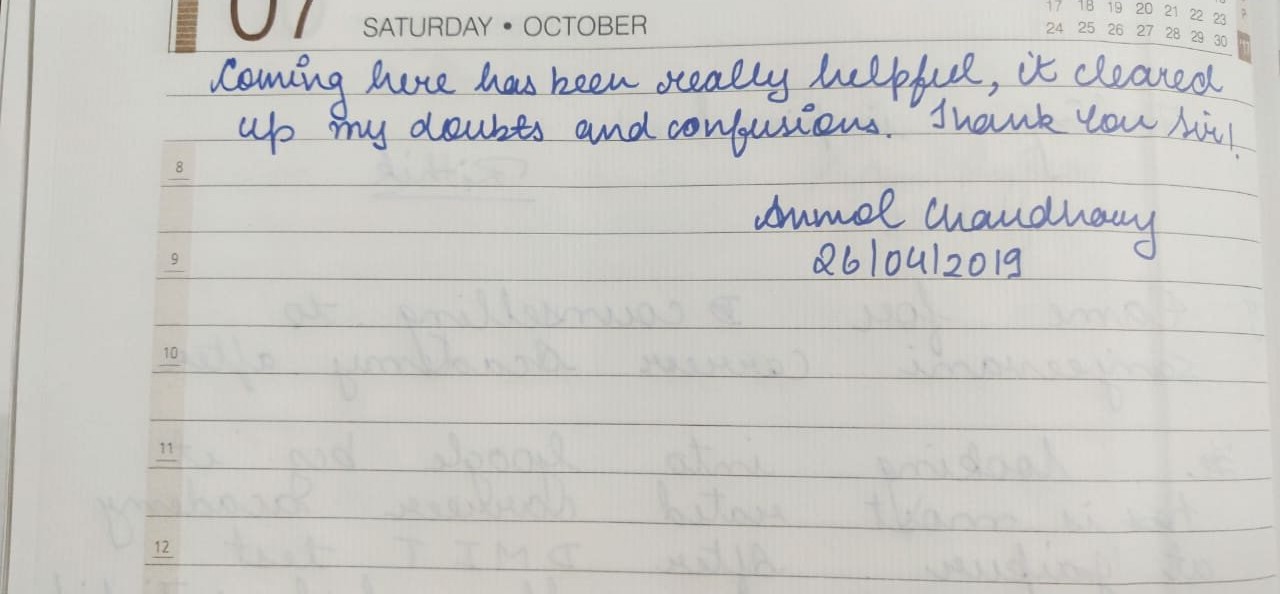 07 SATURDAY • OCTOBER
17 18 19 20 21 22 23
24 25 26 27 28 29 30
Coming here has been really helpful, it cleared
up my doubts and confusions. Thank You Sir!
8
Anmol Chaudhary
26/04/2019
9
10
11
12